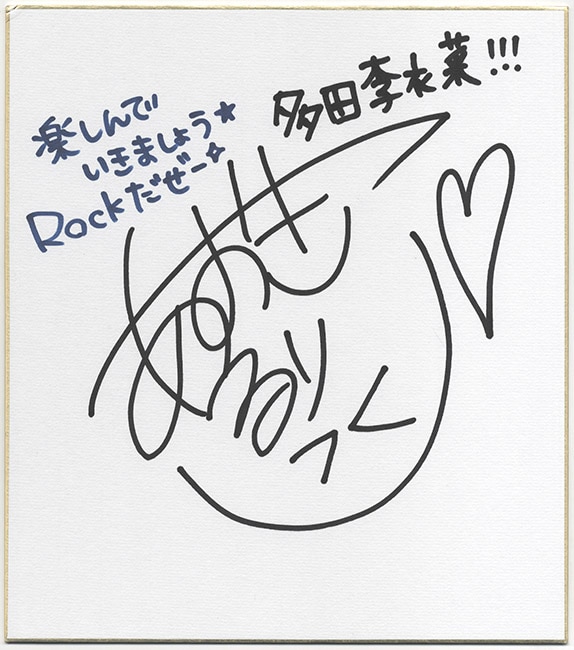 楽しんで
いきましょう☆
Rockだぜー✧
多田李衣菜!!!
あおき
るりっく